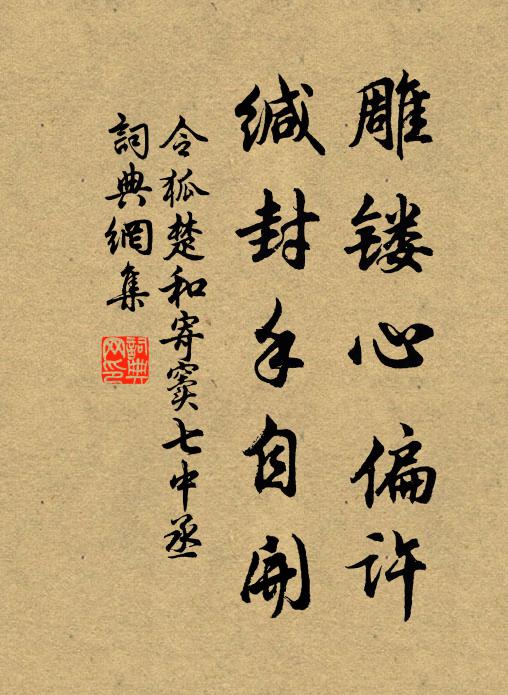 雕镂心偏许
缄封手自开
令狐楚和寄窦七中丞
詞典網集
詞典网印